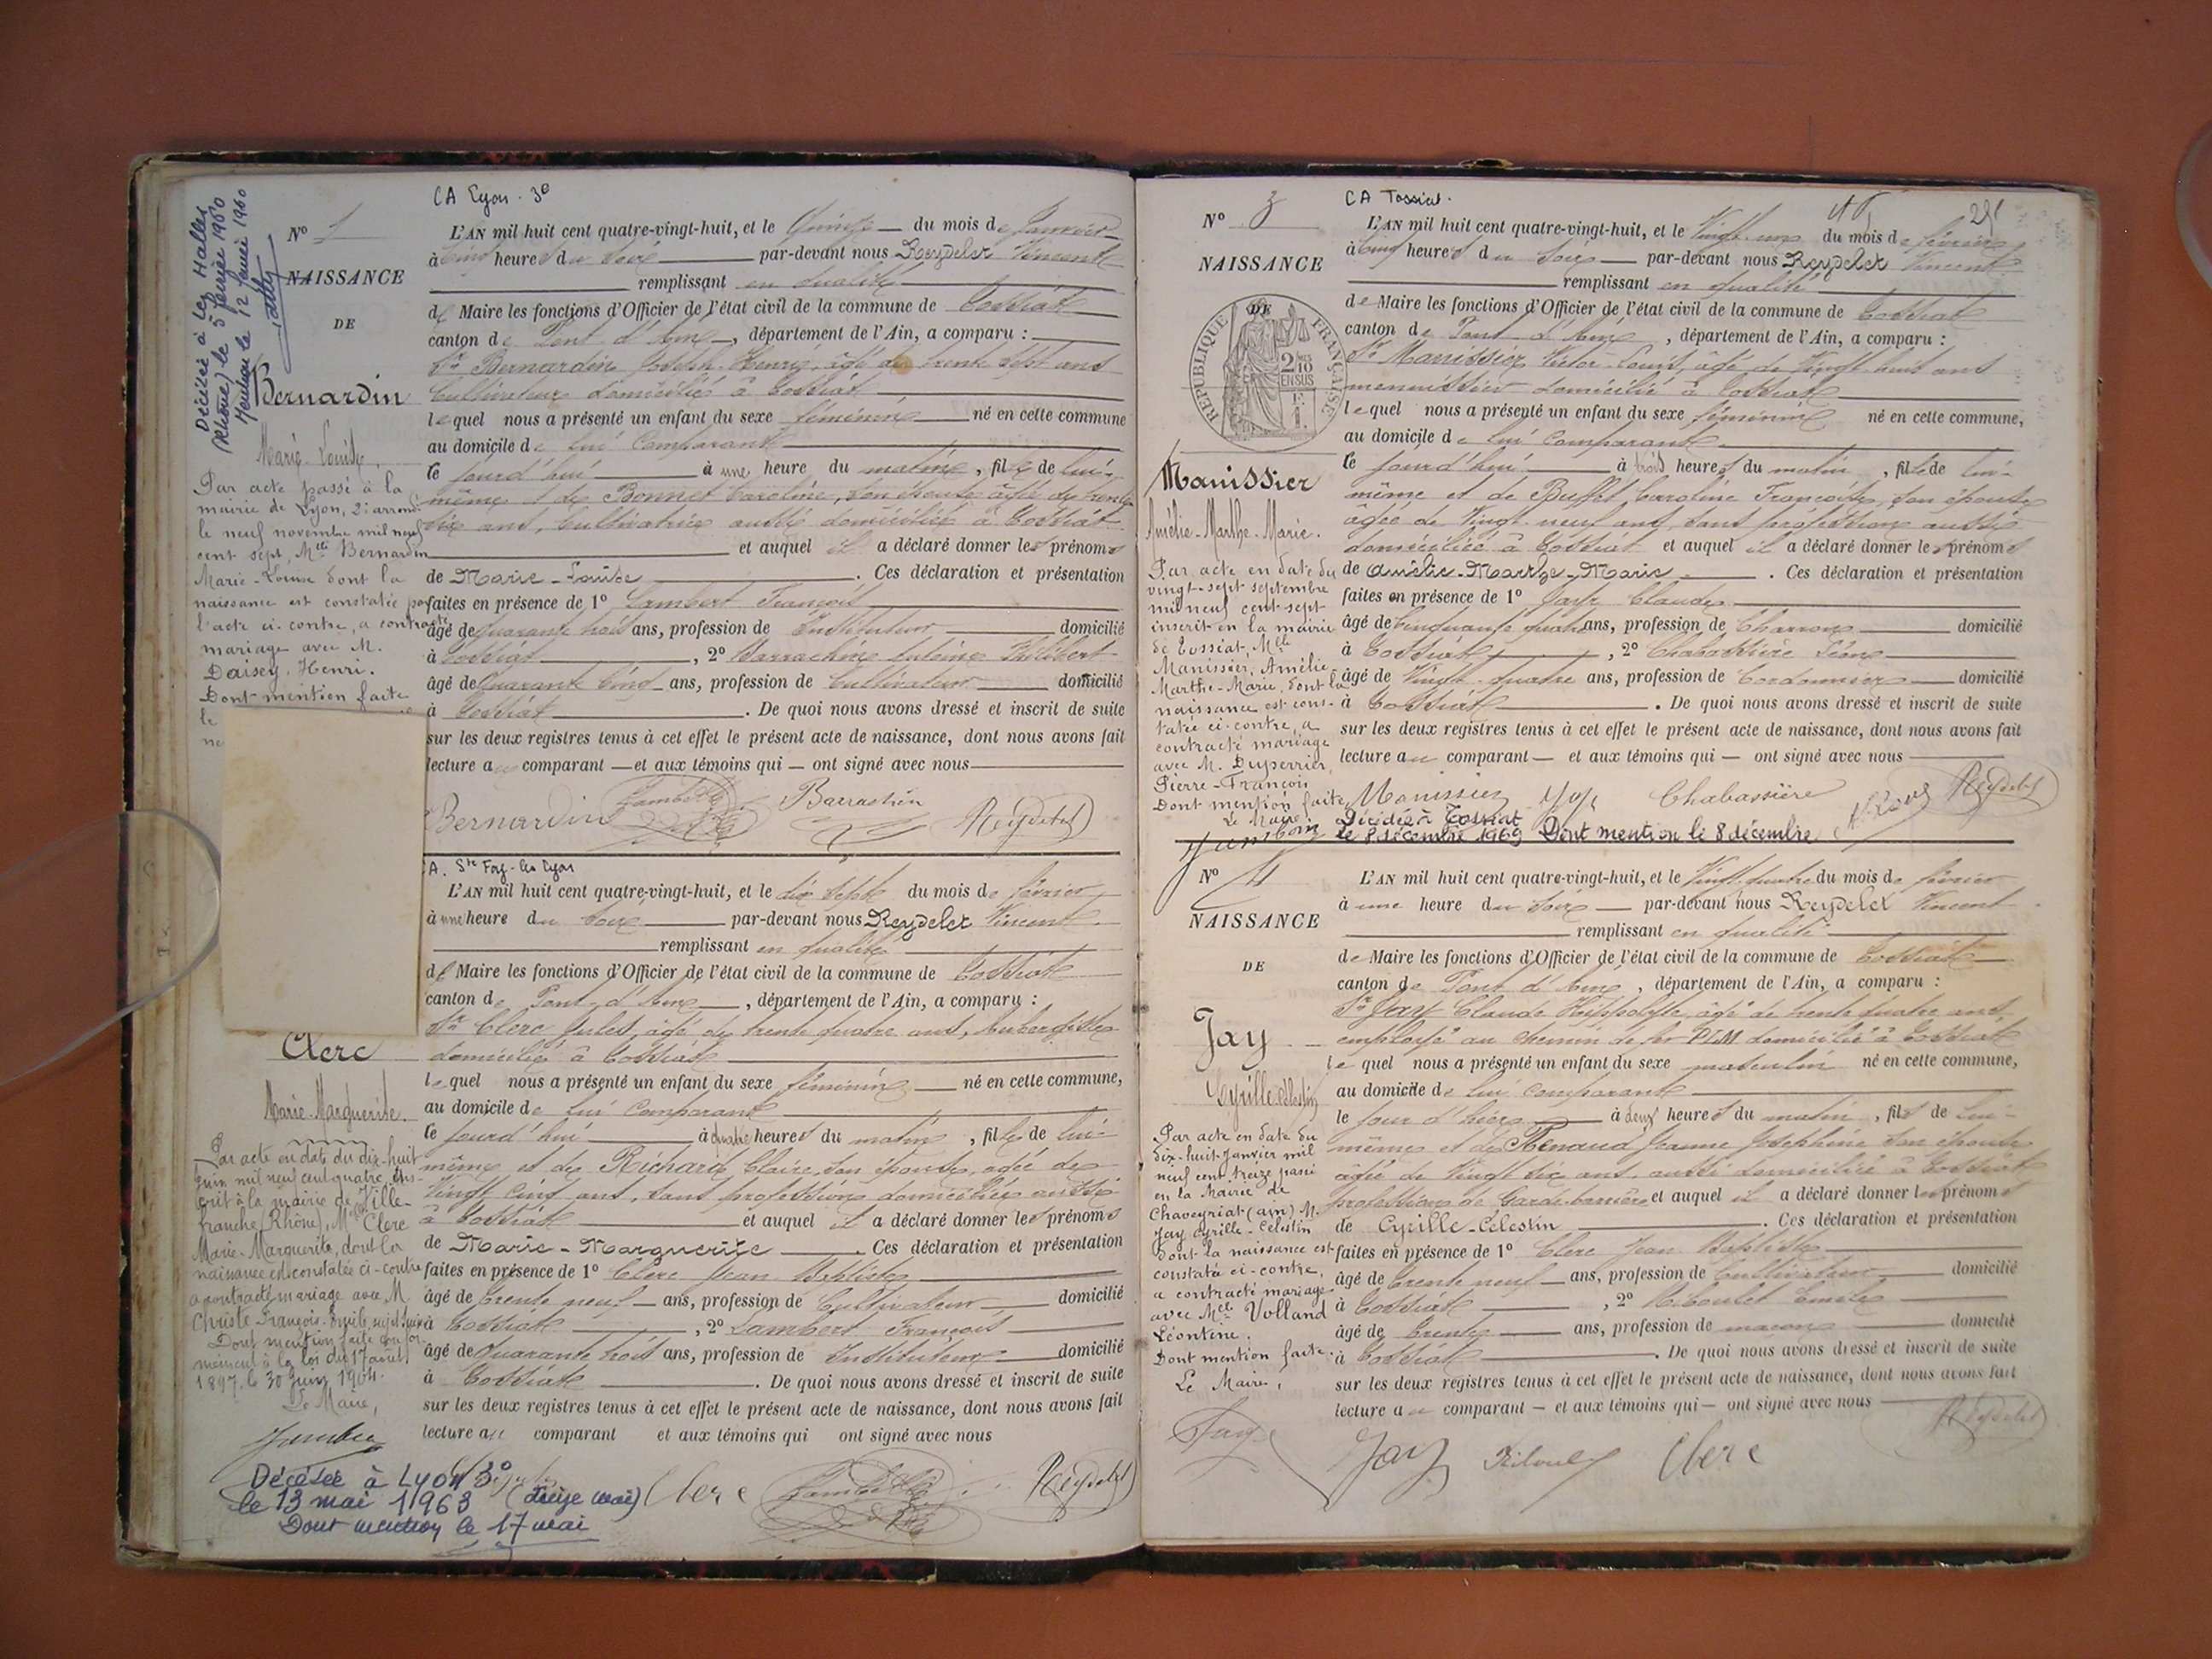 CA Lyon. 3e
Nº 1
NAISSANCE
DE
Bernardin
Marie Louise.
Décédée à les Halles
(Rhône) le 5 février 1960
Mention le 12 février 1960
Par acte passé à la
mairie de Lyon, 2e arrond
le neuf novembre mil neuf
cent sept, Mlle Bernardin
Marie-Louise dont la
naissance est constatée par
l'acte ci-contre, a contracté
mariage avec M.
Daisey, Henri.
Dont mention faite
le
L'AN mil huit cent quatre-vingt-huit, et le Quinze du mois de Janvier
à cinq heures du soir par-devant nous Reydelet Vincent
remplissant en qualité
de Maire les fonctions d'Officier de l'état civil de la commune de Tossiat
canton de Pont d'Ain, département de l'Ain, a comparu :
Sr Bernardin Joseph Henri, âgé de trente sept ans
Cultivateur domicilié à Tossiat
lequel nous a présenté un enfant du sexe féminin né en cette commune
au domicile de lui comparant
le jourd'hui à une heure du matin, fille de lui-
même et de Bonnet Caroline, son épouse âgée de trente
six ans, Cultivatrice aussi domiciliée à Tossiat
et auquel il a déclaré donner les prénoms
de Marie-Louise. Ces déclaration et présentation
faites en présence de 1º Lambert François
âgé de quarante trois ans, profession de Instituteur domicilié
à Tossiat, 2º Barrachin Antoine Philibert
âgé de Quarante Cinq ans, profession de Cultivateur domicilié
à Tossiat. De quoi nous avons dressé et inscrit de suite
sur les deux registres tenus à cet effet le présent acte de naissance, dont nous avons fait
lecture au comparant et aux témoins qui ont signé avec nous
Bernardin Lambert Barrachin Reydelet
A. Ste Foy-lès-Lyon
Clerc
Marie-Marguerite.
Par acte en date du dix-huit
juin mil neuf cent quatre, ins-
crit à la mairie de Ville-
franche (Rhône), Mlle Clerc
Marie-Marguerite, dont la
naissance est constatée ci-contre
a contracté mariage avec M
Christe François-Emile, sujet suisse
Dont mention faite confor-
mément à la loi du 17 août
1897, le 30 juin 1904.
Le Maire,
L'AN mil huit cent quatre-vingt-huit, et le dix sept du mois de février
à une heure du soir par-devant nous Reydelet Vincent
remplissant en qualité
de Maire les fonctions d'Officier de l'état civil de la commune de Tossiat
canton de Pont d'Ain, département de l'Ain, a comparu :
Sr Clerc Jules, âgé de trente quatre ans, Aubergiste
domicilié à Tossiat
lequel nous a présenté un enfant du sexe féminin né en cette commune,
au domicile de lui comparant
le jourd'hui à quatre heures du matin, fille de lui-
même et de Richard Claire, son épouse, agée de
Vingt cinq ans, sans profession domiciliée aussi
à Tossiat et auquel il a déclaré donner les prénoms
de Marie-Marguerite. Ces déclaration et présentation
faites en présence de 1º Clerc Jean Baptiste
âgé de trente neuf ans, profession de Cultivateur domicilié
à Tossiat, 2º Lambert François
âgé de Quarante trois ans, profession de Instituteur domicilié
à Tossiat. De quoi nous avons dressé et inscrit de suite
sur les deux registres tenus à cet effet le présent acte de naissance, dont nous avons fait
lecture au comparant et aux témoins qui ont signé avec nous
Clerc Lambert Reydelet
Décédée à Lyon 3º
le 13 mai 1963 (treize mai)
Dont mention le 17 mai
CA Tossiat.
Nº 3
NAISSANCE
DE
RÉPUBLIQUE FRANÇAISE
2/10 EN SUS
Manissier
Amélie-Marthe-Marie.
Par acte en date du
vingt-sept septembre
mil neuf cent sept
inscrit en la mairie
de Tossiat, Mlle
Manissier, Amélie
Marthe-Marie, dont la
naissance est cons-
tatée ci-contre, a
contracté mariage
avec M. Duperrier,
Pierre-François
Dont mention faite
Le Maire
L'AN mil huit cent quatre-vingt-huit, et le Vingt un du mois de février
à cinq heures du soir par-devant nous Reydelet Vincent
remplissant en qualité
de Maire les fonctions d'Officier de l'état civil de la commune de Tossiat
canton de Pont d'Ain, département de l'Ain, a comparu :
Sr Manissier Victor-Louis, âgé de Vingt huit ans
menuisier domicilié à Tossiat
lequel nous a présenté un enfant du sexe féminin né en cette commune,
au domicile de lui comparant
le jourd'hui à trois heures du matin, fille de lui-
même et de Buffet Caroline Françoise, son épouse
âgée de Vingt-neuf ans, sans profession aussi
domiciliée à Tossiat et auquel il a déclaré donner les prénoms
de Amélie-Marthe-Marie. Ces déclaration et présentation
faites en présence de 1º Jay Claude
âgé de Cinquante quatre ans, profession de Charron domicilié
à Tossiat, 2º Chabassière Léon
âgé de Vingt-quatre ans, profession de Cordonnier domicilié
à Tossiat. De quoi nous avons dressé et inscrit de suite
sur les deux registres tenus à cet effet le présent acte de naissance, dont nous avons fait
lecture au comparant et aux témoins qui ont signé avec nous
Manissier Jay Chabassière Reydelet
Décédée à Tossiat
le 8 décembre 1969 Dont mention le 8 décembre
Nº 4
NAISSANCE
DE
Jay
Cyrille Célestin
Par acte en date du
dix-huit janvier mil
neuf cent treize passé
en la Mairie de
Chaveyriat (Ain) M.
Jay Cyrille-Célestin
dont la naissance est
constatée ci-contre,
a contracté mariage
avec Mlle Volland
Léontine.
Dont mention faite.
Le Maire,
Jay
L'AN mil huit cent quatre-vingt-huit, et le Vingt-quatre du mois de février
à une heure du soir par-devant nous Reydelet Vincent
remplissant en qualité
de Maire les fonctions d'Officier de l'état civil de la commune de Tossiat
canton de Pont d'Ain, département de l'Ain, a comparu :
Sr Jay Claude Hippolyte, âgé de trente quatre ans
employé au chemin de fer PLM domicilié à Tossiat
lequel nous a présenté un enfant du sexe masculin né en cette commune,
au domicile de lui comparant
le jour d'hier à deux heures du matin, fils de lui-
même et de Thenaud Jeanne Joséphine son épouse
âgée de Vingt six ans, aussi domiciliée à Tossiat
profession de Garde-barrière et auquel il a déclaré donner les prénoms
de Cyrille-Célestin. Ces déclaration et présentation
faites en présence de 1º Clerc Jean Baptiste
âgé de trente neuf ans, profession de Cultivateur domicilié
à Tossiat, 2º Riboulet Emile
âgé de trente ans, profession de maçon domicilié
à Tossiat. De quoi nous avons dressé et inscrit de suite
sur les deux registres tenus à cet effet le présent acte de naissance, dont nous avons fait
lecture au comparant et aux témoins qui ont signé avec nous
Jay Riboulet Clerc Reydelet